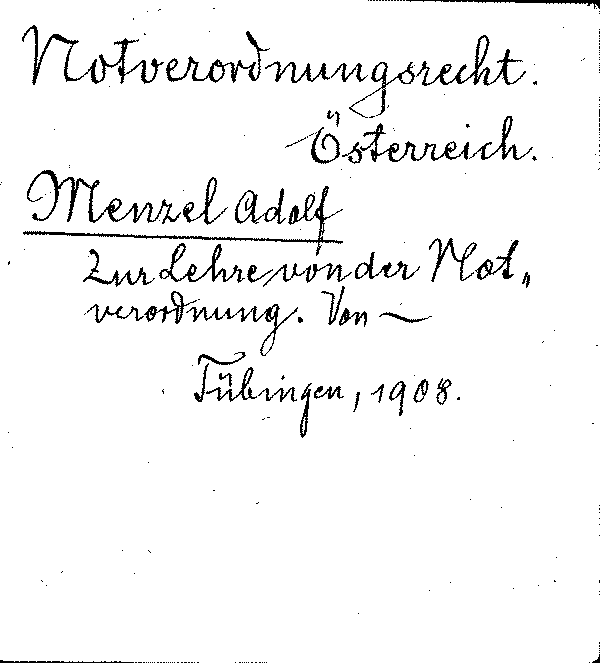 Notverordnungsrecht.
Österreich.
Menzel Adolf
Zur Lehre von der Not„
verordnung. Von —
Tübingen, 1908.